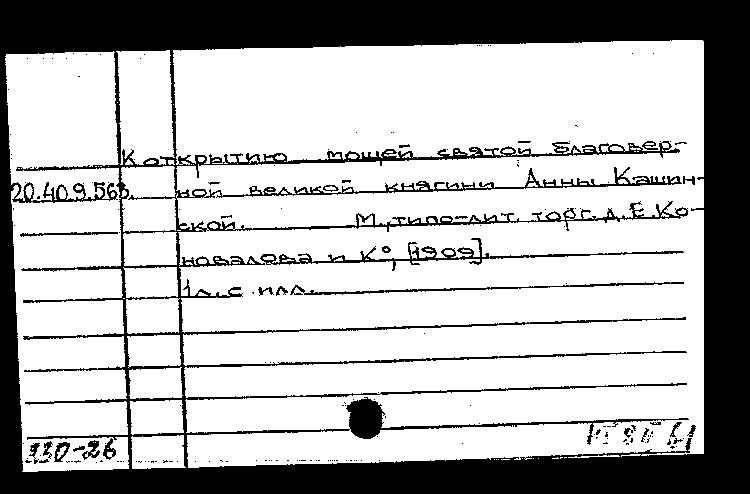 К открытию мощей святой благовер-
20.409.563. ной великой княгини Анны Кашин-
ской. М., типо-лит. торг. д. Е. Ко-
новалова и К°, [1909].
1 л. с илл.
330-26